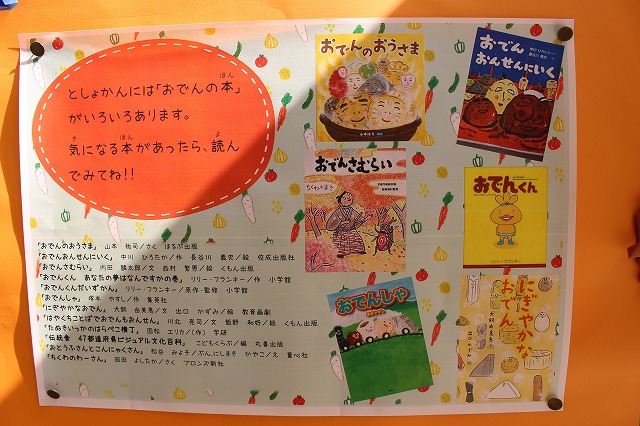 としょかんには「おでんの本」
がいろいろあります。
気になる本があったら、読ん
でみてね!!
「おでんのおうさま」 山本 祐司/さく ほるぷ出版
「おでんおんせんにいく」 中川 ひろたか/作 長谷川 義史/絵 佼成出版社
「おでんさむらい」 内田 麟太郎/文 西村 繁男/絵 くもん出版
「おでんくん あなたの夢はなんですかの巻」 リリー・フランキー/作 小学館
「おでんくんだいずかん」 リリー・フランキー/原作・監修 小学館
「おでんしゃ」 塚本 やすし/作 集英社
「にぎやかなおでん」 犬飼 由美恵/文 出口 かずみ/絵 教育画劇
「はやくちことばでおでんもおんせん」 川北 亮司/文 飯野 和好/絵 くもん出版
「たぬきいっかのはらぺこ横丁」 国松 エリカ/(作) 学研
「伝統食 47都道府県ビジュアル文化百科」 こどもくらぶ/編 丸善出版
「おとうふさんとこんにゃくさん」 松谷 みよ子/ぶん にしまき かやこ/え 童心社
「ちくわのわーさん」 岡田 よしたか/さく ブロンズ新社
おでんのおうさま
おでん
おんせんにいく
おでんさむらい
ちくわのまき
おでんくん
リリー・フランキー
おでんしゃ
にぎやかな
おでん